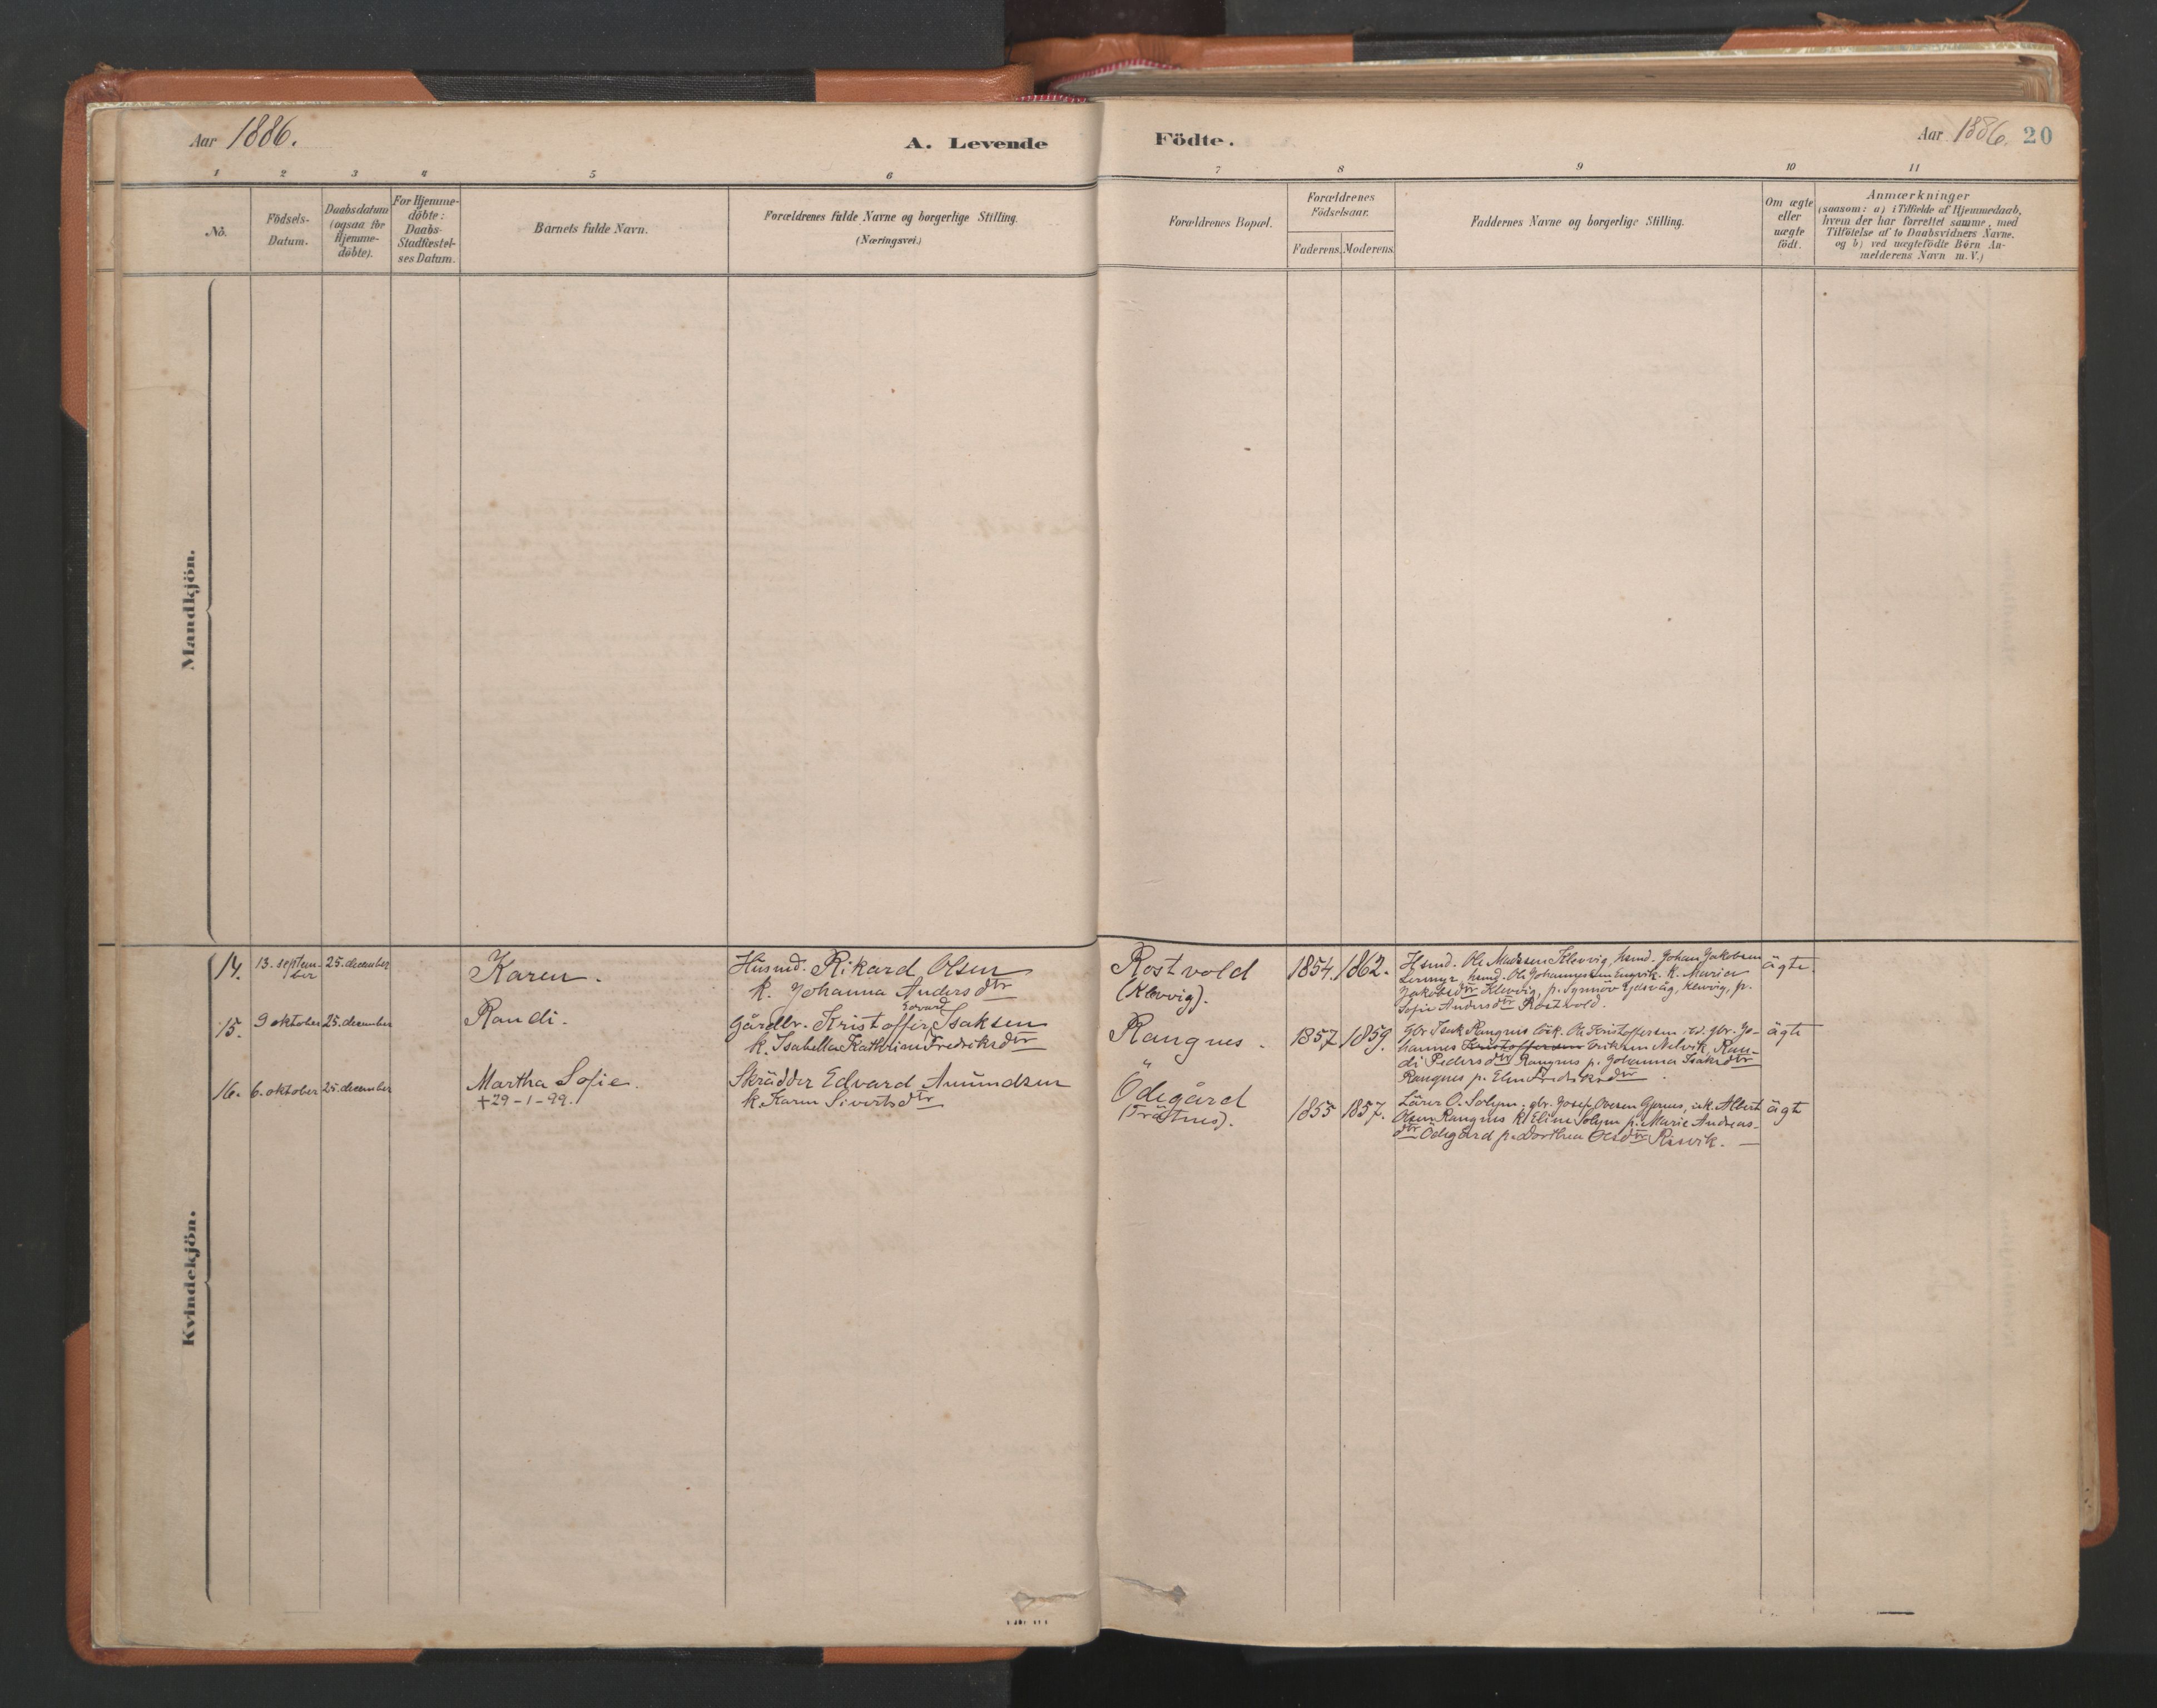 Aar 1886.
A. Levende
Födte.
Aar 1886. 20
1 2 3 4 5 6 7 8 9 10 11
No.
Födsels-
Datum.
Daabsdatum
(ogsaa for
Hjemme-
döbte).
For Hjemme-
döbte:
Daabs-
Stadfæstel-
ses Datum.
Barnets fulde Navn.
Forældrenes fulde Navne og borgerlige Stilling.
(Næringsvei.)
Forældrenes Bopæl.
Forældrenes
Födselsaar.
Faderens. Moderens.
Faddernes Navne og borgerlige Stilling.
Om ægte
eller
uægte
födt.
Anmærkninger
(saasom: a) i Tilfælde af Hjemmedaab,
hvem der har forrettet samme, med
Tilföielse af to Daabsvidners Navne.
og b) ved uægtefödte Börn An-
melderens Navn m. V.)
Mandkjön.
Kvindekjön.
14.
13. septem-
ber
25. december
Karen.
Husmd. Rikard Olsen
k. Johanna Andersdtr
Rostvold
(Klevvig).
1854. 1862.
Hsmd. Ole Madssen Klevvig, hsmd. Johan Jakobsen
hsmd. Ole Johannessen Engvik. k. Maria
Jakobsdtr Klevvig, p. Synnöv Gjelsvåg, Klevvig, p.
Sofie Andersdtr Rostvold.
ägte.
15.
9 oktober
25. december
Randi.
Edvard
Gårdbr. Kristoffer Isaksen
k. Isabella Kathrine Fredriksdtr
Rangnes.
1857 1859.
Gbr Isak Rangnes Ole Kristoffersen gbr. Jo-
hannes Kristoffersen Eriksen Nelvik, Ran-
di Pedersdtr Rangnes p. Johanna Isaksdtr
Rangnes p. Elen Fredriksdtr.
ägte
16.
6. oktober
25. december
Martha Sofie.
+29-1-99.
Skrädder Edvard Amundsen
k. Karen Sivertsdtr
Ödegård
(Trästnes).
1855 1857.
Lärer O. Solem. gbr. Josef Ovesen Gjernes, Albert
Olsen Rangnes k. Eline Solem p. Marie Andreas-
dtr Ödegård p. Dorthea Olsdtr Risvik.
ägte